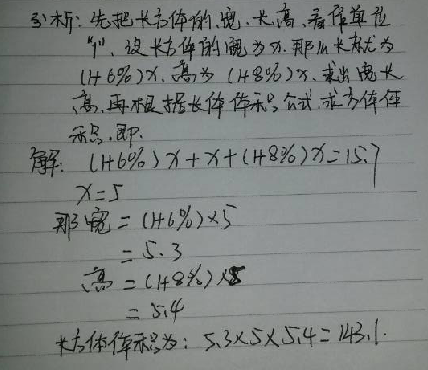 分析：先把长方体的宽、长、高、看作单位
“1”，设长方体的宽为x，那么长就为
(1+6%)x，高为(1+8%)x，求出宽长
高，再根据长体体积公式求方体体
积，即
解：(1+6%)x+x+(1+8%)x=15.7
x=5
那宽=(1+6%)×5
=5.3
高=(1+8%)×5
=5.4
长方体体积为：5.3×5×5.4=143.1.